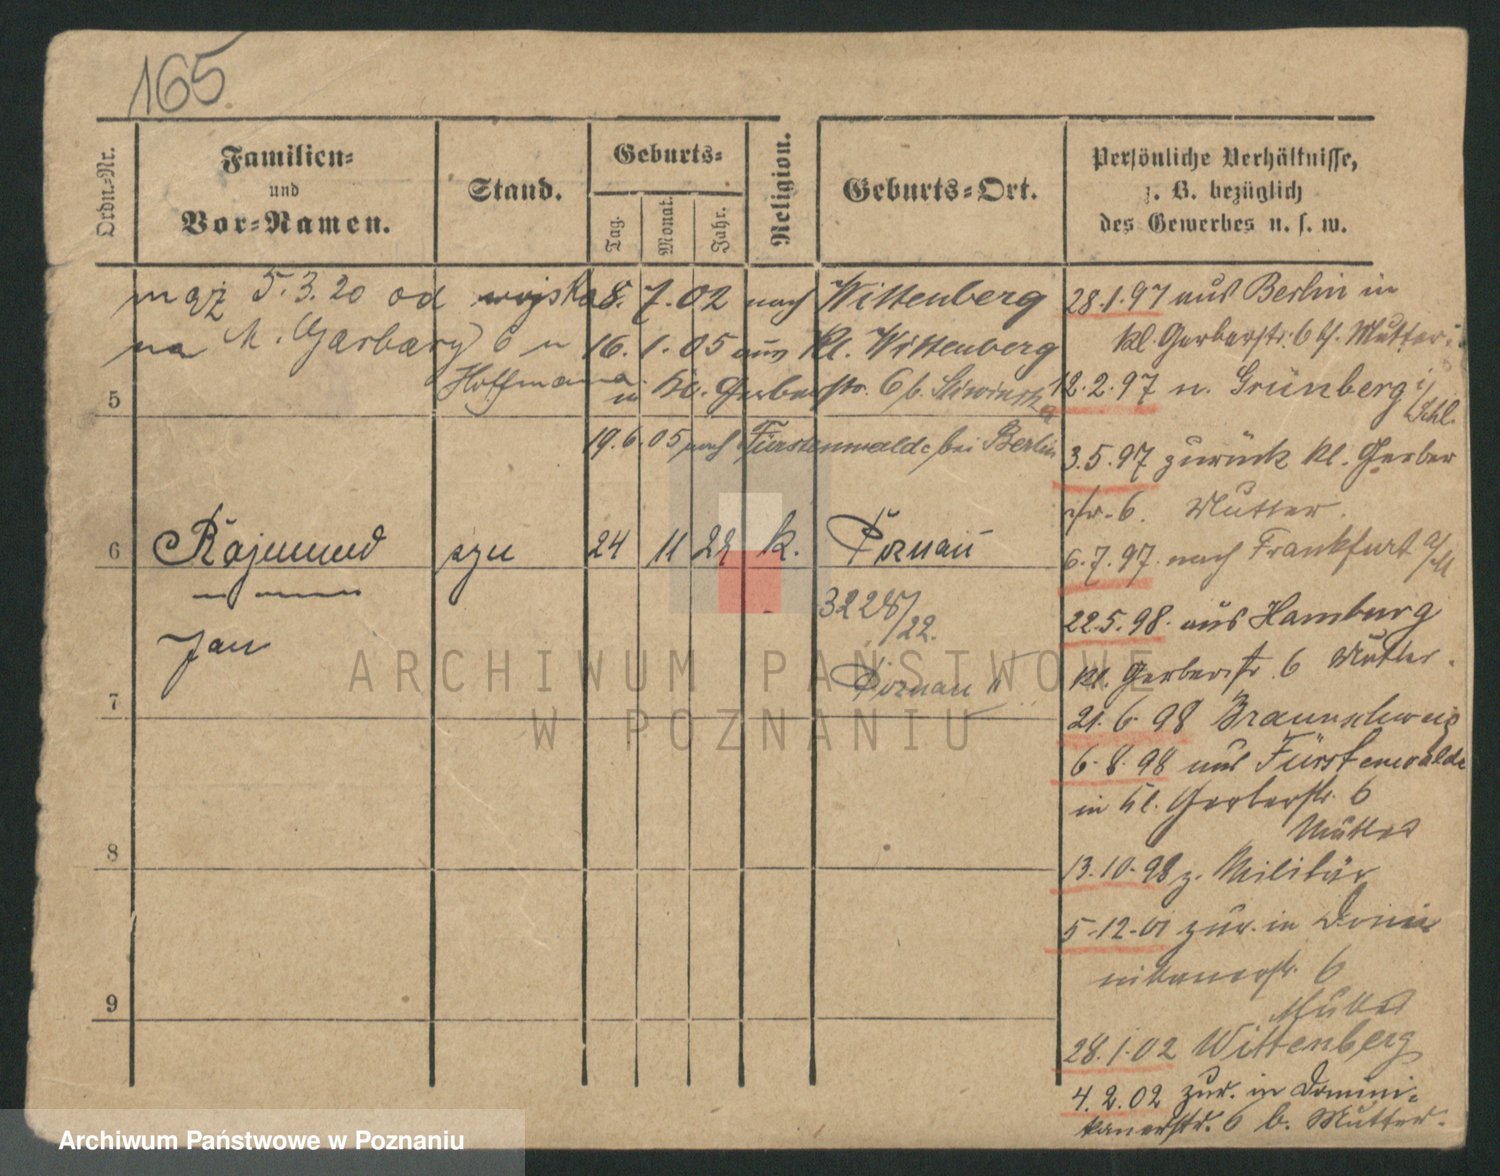 165
Ordn.-Nr.
Familien-
und
Vor-Namen.
Stand.
Geburts-
Tag.
Monat.
Jahr.
Religion.
Geburts-Ort.
Persönliche Verhältnisse,
z. B. bezüglich
des Gewerbes u. s. w.
mąż 5.3.20 od wojska 8. 7. 02 nach Wittenberg
na M. Garbary 6 u 16. 1. 05 aus Kl. Wittenberg
Hoffmanna in Kl. Gerberstr. 6 b.
5
19.6.05 nach Fürstenwalde bei Berlin
6 Rajmund syn 24 11 22 k. Poznań
3228/22.
Jan
Poznań
7
8
9
28.1.97 aus Berlin in
kl. Gerberstr. 6 b. Mutter
12.2.97 n. Grünberg i/Schl.
3.5.97 zurück kl. Gerber
str. 6. Mutter.
6.7.97. nach Frankfurt a/M
22.5.98. aus Hamburg
kl. Gerberstr. 6 Mutter.
21.6.98 Braunschweig
6.8.98 aus Fürstenwalde
in kl. Gerberstr. 6
Mutter
13.10.98 z. Militär
5.12.01 zur. in Domi
nikanerstr. 6
Mutter
28.1.02 Wittenberg
4.2.02 zur. in Domini-
kanerstr. 6 b. Mutter.
ARCHIWUM PAŃSTWOWE
W POZNANIU
Archiwum Państwowe w Poznaniu